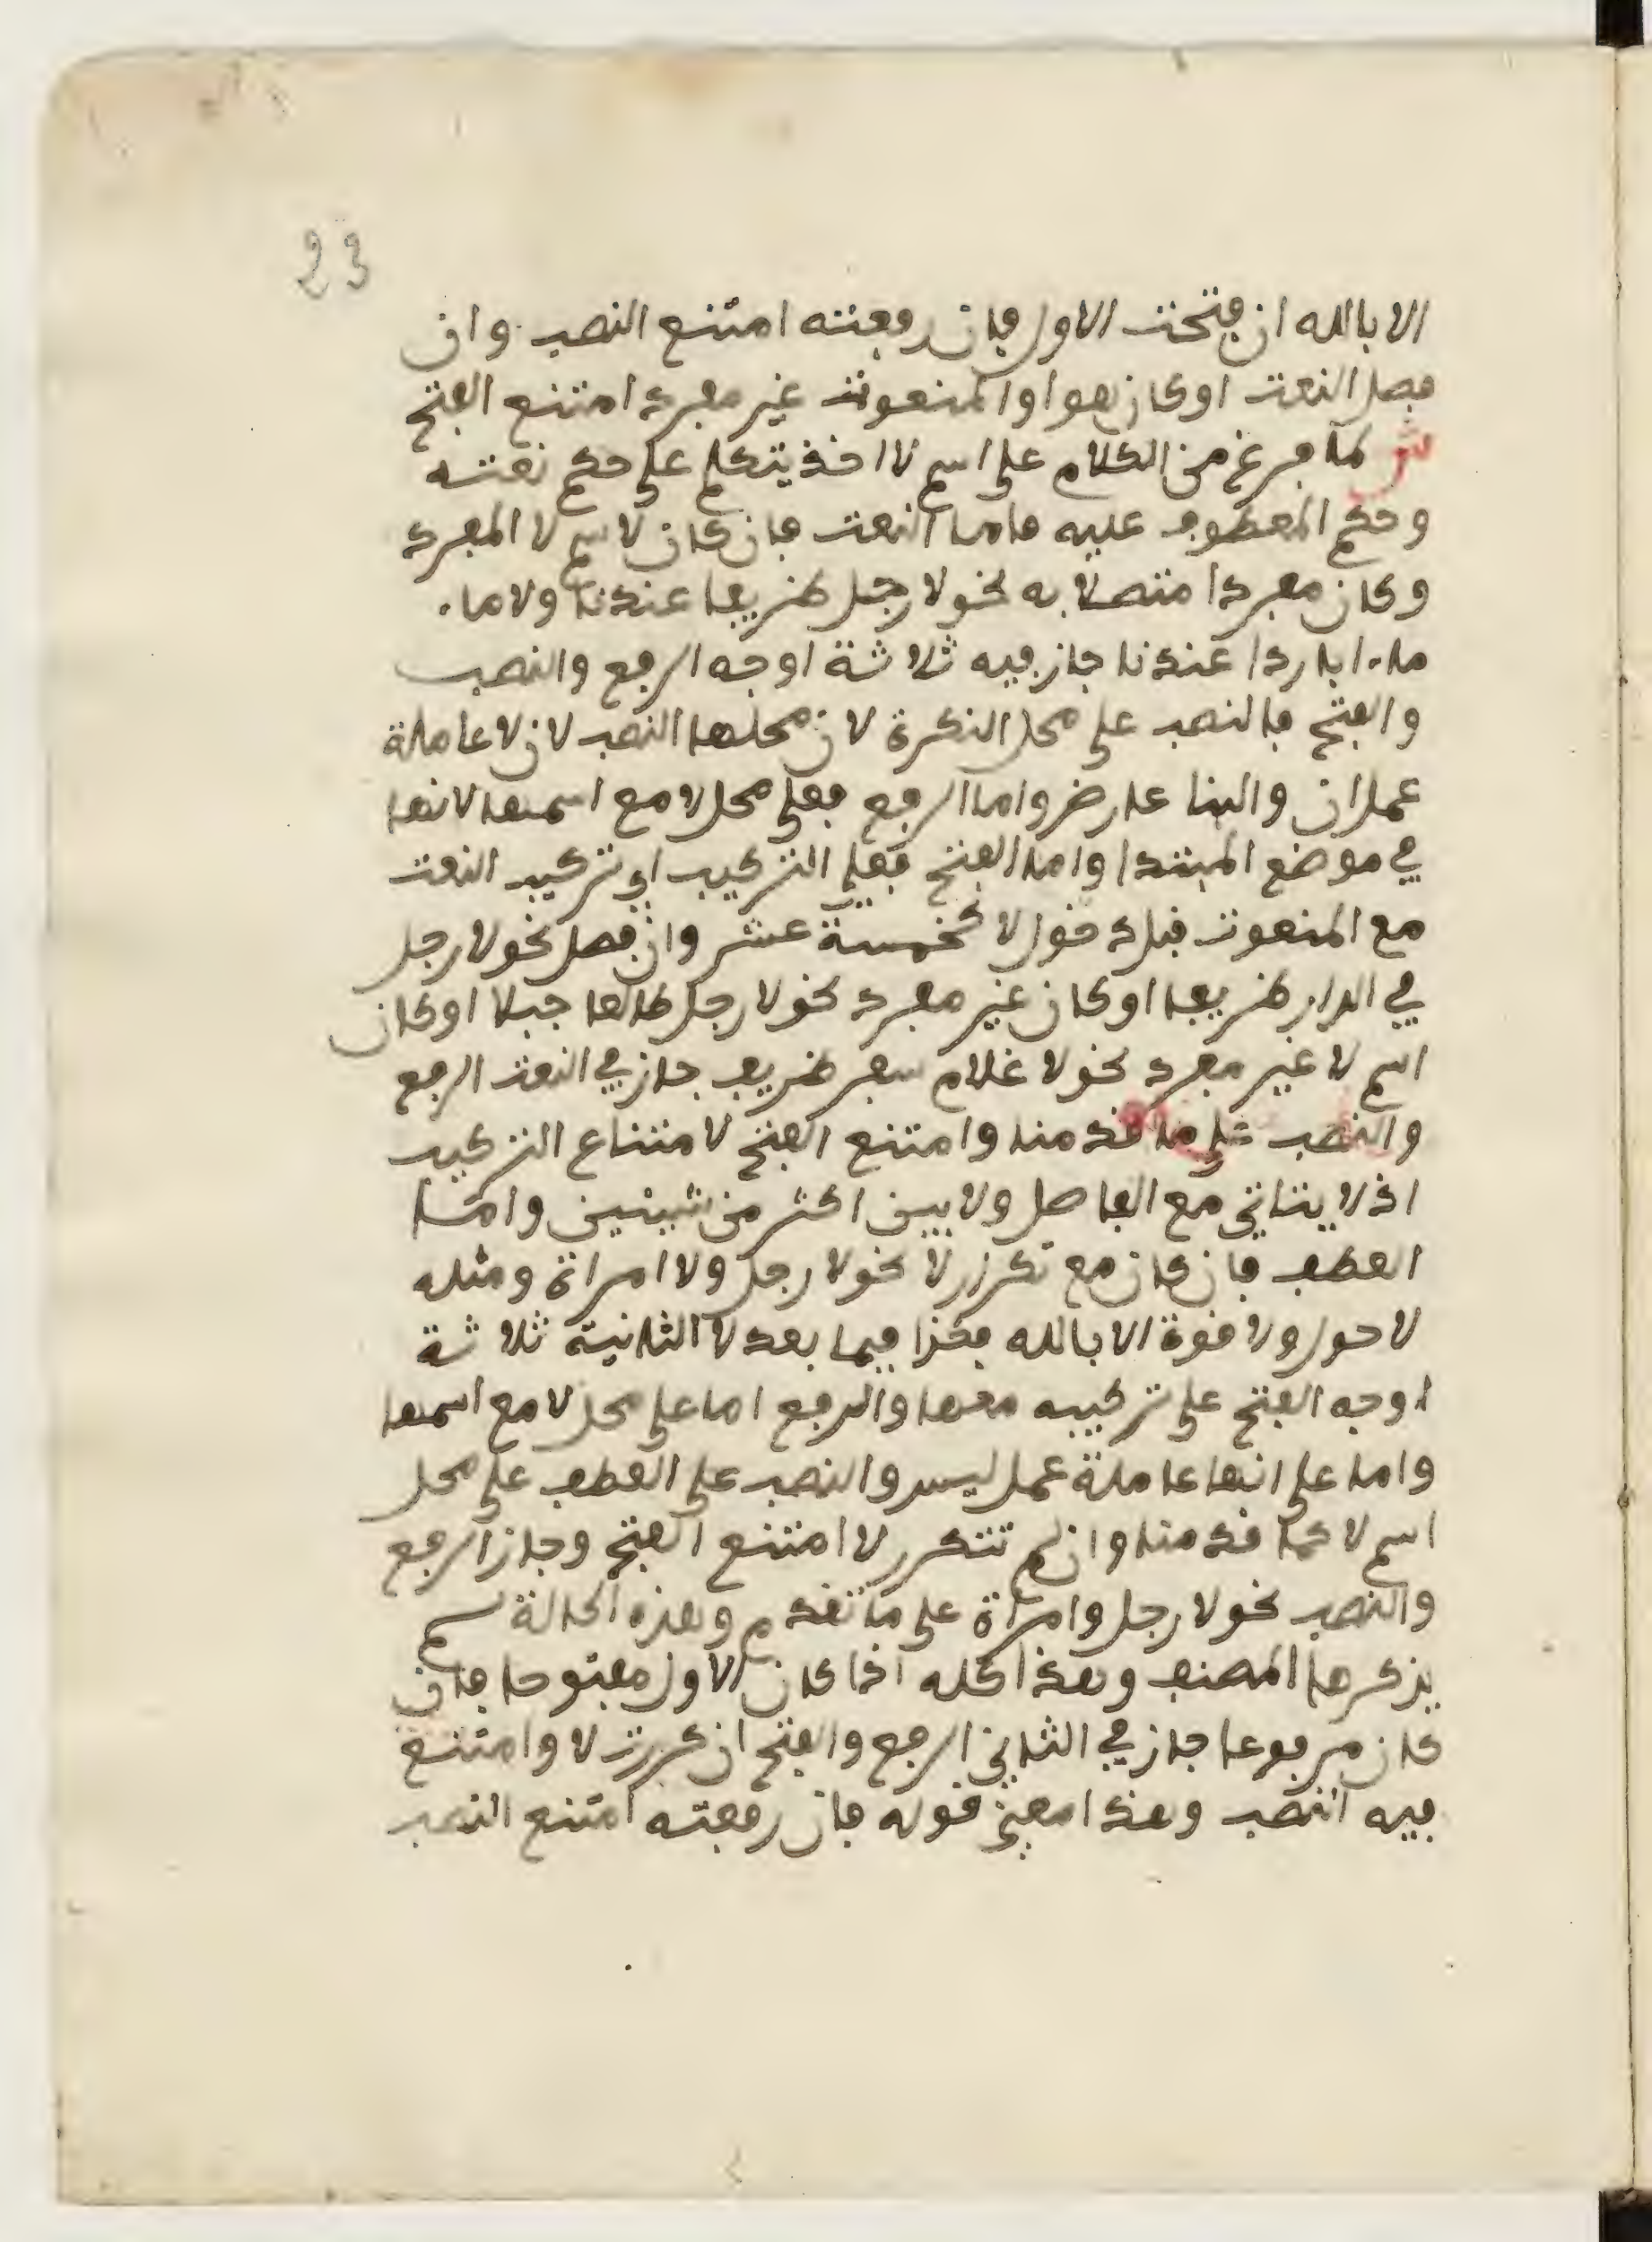 23
الا بالله ان فتحت الاول فان رفعته امتنع النصب وان
فصل النعت او كان هو او المنعوت غير مفرد امتنع الفتح
ش لما فرغ من الكلام على اسم لا اخذ يتكلم على حكم نعته
وحكم المعطوف عليه فاما النعت فان كان لاسم لا المفرد
وكان مفردا متصلا به نحو لا رجل ظريفا عندنا ولا ماء
ماء باردا عندنا جاز فيه ثلاثة اوجه الرفع والنصب
والفتح فالنصب على محل النكرة لان محلها النصب لان لا عاملة
عمل ان والبنا عارض واما الرفع فعلى محل لا مع اسمها لانها
في موضع المبتدا واما الفتح فعلى التركيب اي تركيب النعت
مع المنعوت قبل دخول لا كخمسة عشر وان فصل نحو لا رجل
في الدار ظريفا او كان غير مفرد نحو لا رجل طالعا جبلا او كان
اسم لا غير مفرد نحو لا غلام سفر ظريف جاز في النعت الرفع
والنصب على ما قدمنا وامتنع الفتح لامتناع التركيب
اذ لا يتاتى مع الفاصل ولا بين اكثر من شيئين واما
العطف فان كان مع تكرر لا نحو لا رجل ولا امراة ومثله
لا حول ولا قوة الا بالله فكذا فيما بعد لا الثانية ثلاثة
اوجه الفتح على تركيبه معها والرفع اما على محل لا مع اسمها
واما على انها عاملة عمل ليس والنصب على العطف على محل
اسم لا كما قدمنا وان لم تتكرر لا امتنع الفتح وجاز الرفع
والنصب نحو لا رجل وامراة على ما تقدم وهذه الحالة لم
يذكرها المصنف وهذا كله اذا كان الاول مفتوحا فان
كان مرفوعا جاز في الثاني الرفع والفتح ان كررت لا وامتنع
فيه النصب وهذا معنى قوله فان رفعته امتنع النصب